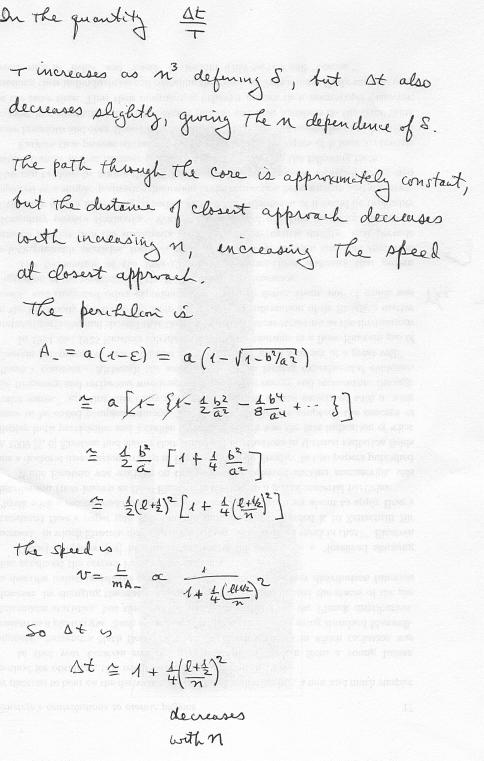 In the quantity Δt/T
T increases as n³ defining δ, but Δt also
decreases slightly, giving the n dependence of δ.
The path through the core is approximately constant,
but the distance of closest approach decreases
with increasing n, increasing the speed
at closest approach.
The perihelion is
A₋ = a(1-ε) = a(1-√(1-b²/a²))
≅ a[1-{1-½ b²/a² - ⅛ b⁴/a⁴ + ··· }]
≅ ½ b²/a [1 + ¼ b²/a²]
≅ ½(ℓ+½)² [1 + ¼((ℓ+½)/n)²]
The speed is
v = L/mA₋ ∝ 1/(1 + ¼((ℓ+½)/n)²)
So Δt is
Δt ≅ 1 + ¼((ℓ+½)/n)²
decreases
with n